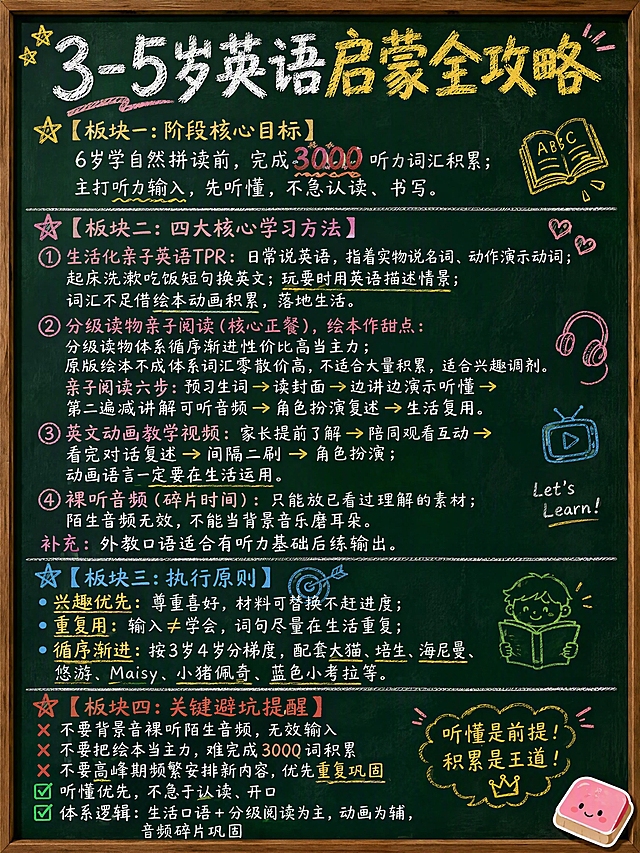 3-5岁英语启蒙全攻略
【板块一：阶段核心目标】
6岁学自然拼读前，完成3000听力词汇积累；
主打听力输入，先听懂，不急认读、书写。
ABC
【板块二：四大核心学习方法】
① 生活化亲子英语TPR：日常说英语，指着实物说名词、动作演示动词；
起床洗漱吃饭短句换英文；玩耍时用英语描述情景；
词汇不足借绘本动画积累，落地生活。
② 分级读物亲子阅读(核心正餐)，绘本作甜点：
分级读物体系循序渐进性价比高当主力；
原版绘本不成体系词汇零散价高，不适合大量积累，适合兴趣调剂。
亲子阅读六步：预习生词→读封面→边讲边演示听懂→
第二遍减讲解可听音频→角色扮演复述→生活复用。
③ 英文动画教学视频：家长提前了解→陪同观看互动→
看完对话复述→间隔二刷→角色扮演；
动画语言一定要在生活运用。
④ 裸听音频(碎片时间)：只能放已看过理解的素材；
陌生音频无效，不能当背景音乐磨耳朵。
Let's
Learn!
补充：外教口语适合有听力基础后练输出。
【板块三：执行原则】
• 兴趣优先：尊重喜好，材料可替换不赶进度；
• 重复用：输入≠学会，词句尽量在生活重复；
• 循序渐进：按3岁4岁分梯度，配套大猫、培生、海尼曼、
悠游、Maisy、小猪佩奇、蓝色小考拉等。
【板块四：关键避坑提醒】
✗ 不要背景音裸听陌生音频，无效输入
✗ 不要把绘本当主力，难完成3000词积累
✗ 不要高峰期频繁安排新内容，优先重复巩固
☑ 听懂优先，不急于认读、开口
☑ 体系逻辑：生活口语+分级阅读为主，动画为辅，
音频碎片巩固
听懂是前提！
积累是王道！